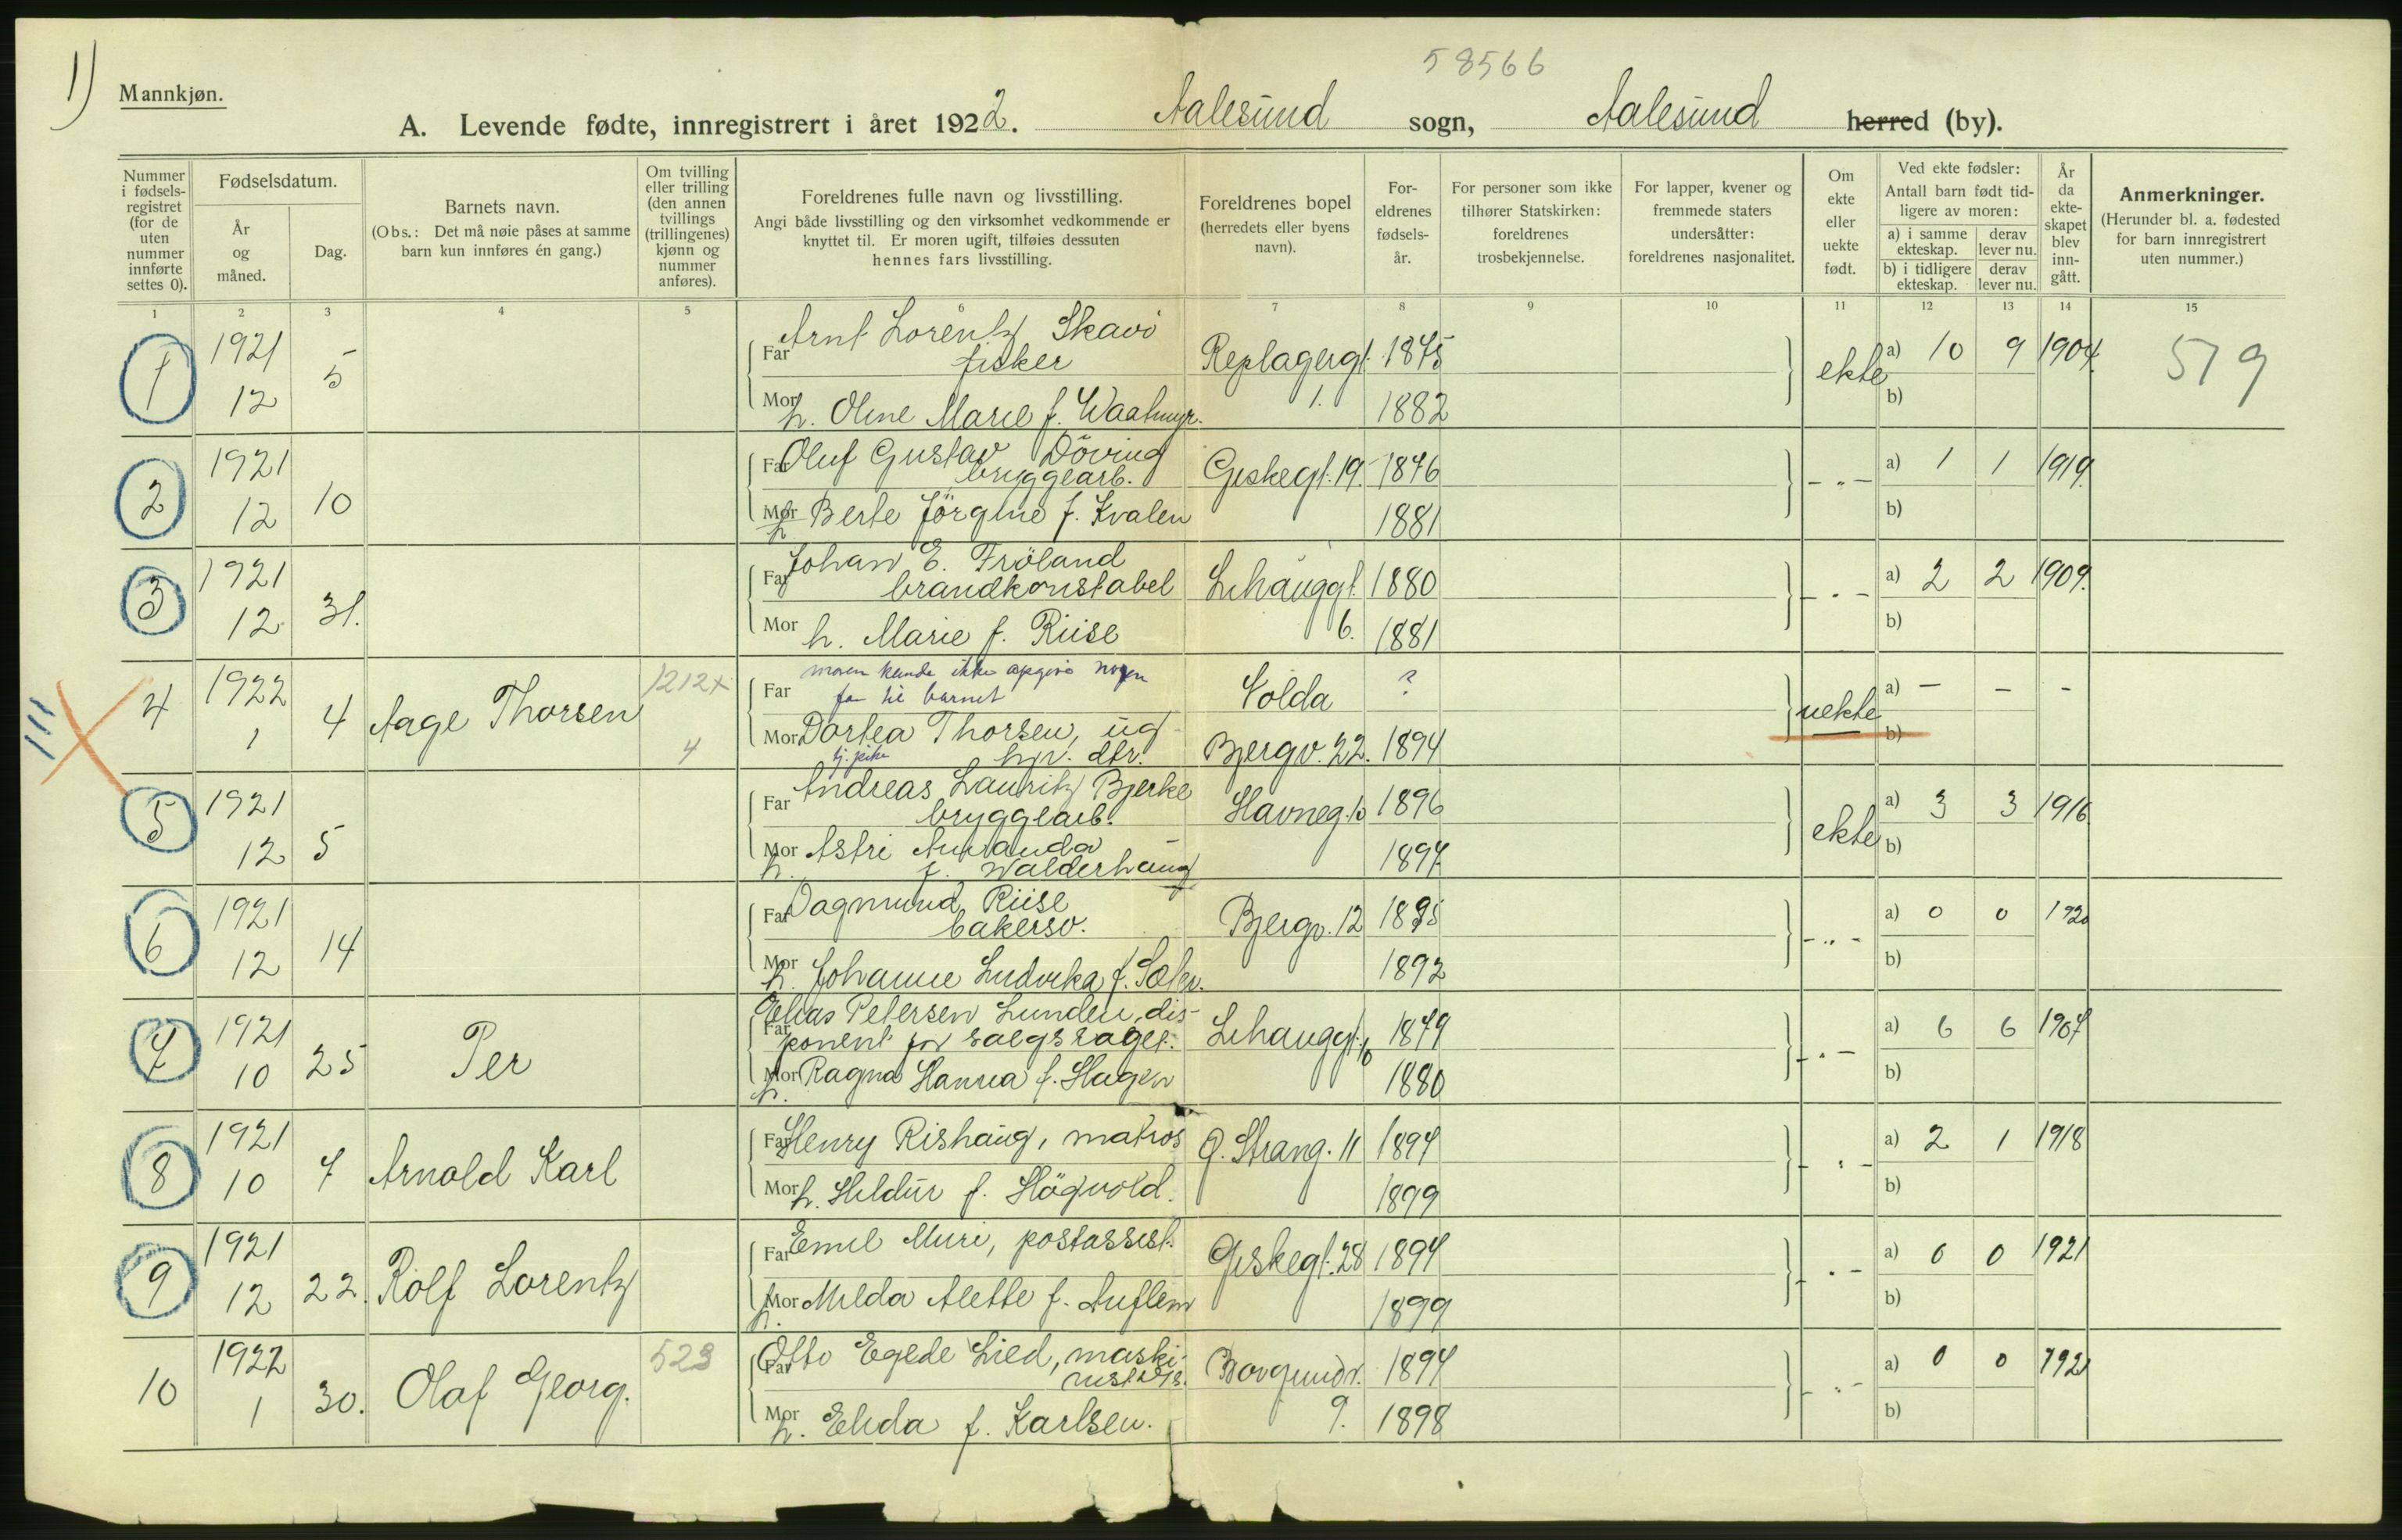 1)
Mannkjøn.
58566
A. Levende fødte, innregistrert i året 1922. Aalesund sogn, Aalesund herred (by).
Nummer i fødselsregistret (for de uten nummer innførte settes 0).
Fødselsdatum.
År og måned.
Dag.
Barnets navn.
(Obs.: Det må nøie påses at samme barn kun innføres én gang.)
Om tvilling eller trilling (den annen tvillings (trillingenes) kjønn og nummer anføres).
Foreldrenes fulle navn og livsstilling.
Angi både livsstilling og den virksomhet vedkommende er knyttet til. Er moren ugift, tilføies dessuten hennes fars livsstilling.
Foreldrenes bopel (herredets eller byens navn).
Foreldrenes fødselsår.
For personer som ikke tilhører Statskirken: foreldrenes trosbekjennelse.
For lapper, kvener og fremmede staters undersåtter: foreldrenes nasjonalitet.
Om ekte eller uekte født.
Ved ekte fødsler: Antall barn født tidligere av moren:
a) i samme ekteskap.
derav lever nu.
b) i tidligere ekteskap.
derav lever nu.
År da ekteskapet blev inngått.
Anmerkninger.
(Herunder bl. a. fødested for barn innregistrert uten nummer.)
1 2 3 4 5 6 7 8 9 10 11 12 13 14 15
1 1921 12 5
Far Arnt Lorentz Skavö fisker Replagergt. 1. 1875 ekte a) 10 9 1904. 519
Mor h. Oline Marie f. Waatmyr. 1882 b)
2 1921 12 10
Far Oluf Gustav Döving bryggearb. Giskegt. 19. 1876 - " - a) 1 1 1919.
Mor h. Berte Jörgine f. Kvalen 1881 b)
3 1921 12 31.
Far Johan E. Fröland brandkonstabel Lihauggt. 6. 1880 - " - a) 2 2 1909.
Mor h. Marie f. Riise 1881 b)
4 1922 1 4 Aage Thorsen 1212+ 4
Far moren kunde ikke opgive nogen far til barnet Volda ? uekte a) - - -
Mor Dortea Thorsen, ug tj. pike Bjergv. 22. 1894 b)
5 1921 12 5
Far Andreas Lauritz Bjerke bryggearb. Havneg. 10 1896 ekte a) 3 3 1916
Mor h. Astri Amanda f. Walderhaug 1897 b)
6 1921 12 14
Far Dagmund Riise bakersv. Bjergv. 12 1895 - " - a) 0 0 1920
Mor h. Johanne Ludvika f. 1892 b)
7 1921 10 25 Per
Far Elias Petersen Lunden, disponent for salgslaget. Lihauggt. 10 1879 - " - a) 6 6 1907
Mor h. Ragna Hanna f. Hagen 1880 b)
8 1921 10 7 Arnold Karl
Far Henry Rishaug, matros Ö. Strang. 11 1897 - " - a) 2 1 1918
Mor h. Hildur f. Högvold. 1899 b)
9 1921 12 22. Rolf Lorentz
Far Emil Muri, postassist. Giskegt. 28 1894 - " - a) 0 0 1921
Mor h. Milda Alette f. Auflem 1899 b)
10 1922 1 30. Olaf Georg. 523
Far Otto Egede Lied, maskinist Borgundv. 9. 1894 - " - a) 0 0 1921
Mor h. Elida f. Karlsen. 1898 b)